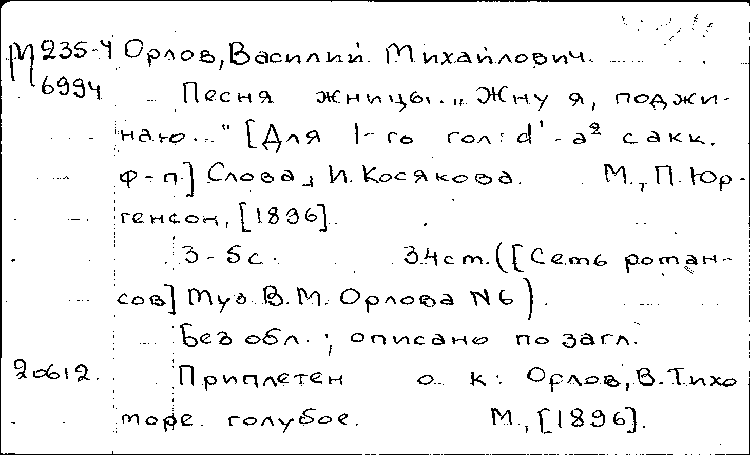 М 235-4 Орлов, Василий Михайлович.
6994 Песня жницы. „Жну я, поджи-
наю..." [Для 1-го гол: d¹-a² с акк.
ф-п] Слова И. Косякова. М., П. Юр-
генсон, [1896].
3-5 с. 34 cm. ([Семь роман-
сов] муз. В. М. Орлова N6).
Без обл.; описано по загл.
20612. Приплетен к: Орлов, В. Тихо
море голубое. М., [1896].